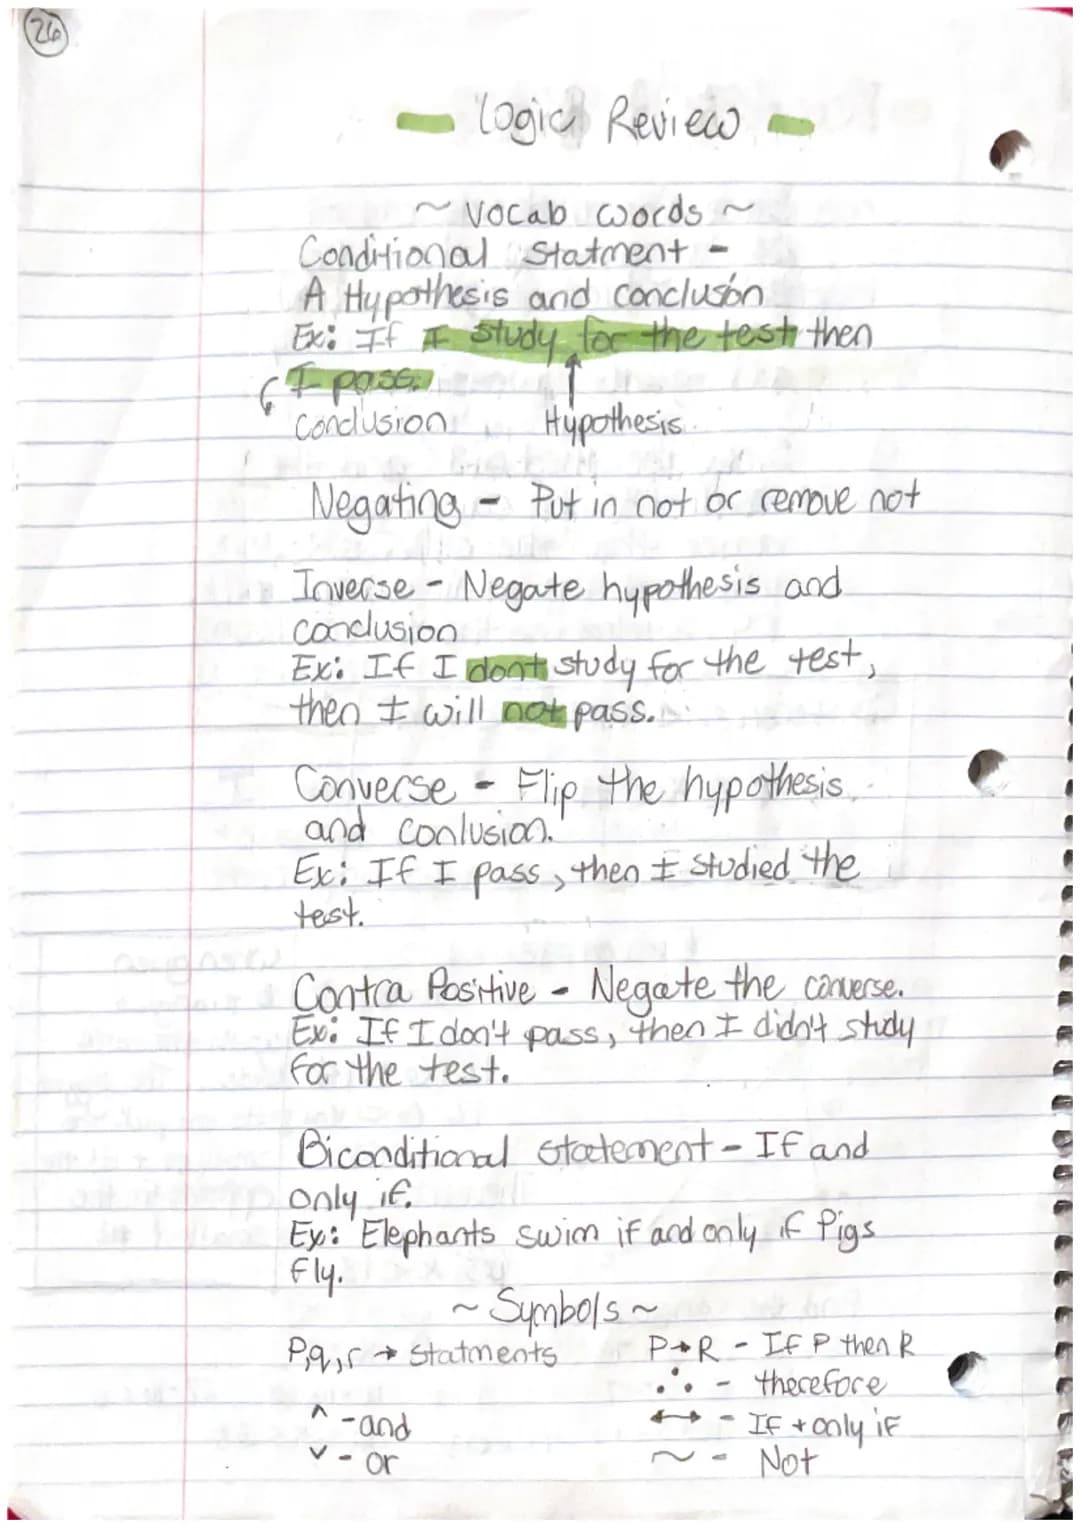 26
- Logic Review -
~ Vocab words ~
Conditional Statment -
A Hypothesis and conclusion
Ex: If I study for the test then
I pass.
conclusion Hypothesis
Negating - Put in not or remove not
Inverse - Negate hypothesis and
conclusion
Ex: If I dont study for the test,
then I will not pass.
Converse - Flip the hypothesis
and conlusion.
Ex: If I pass, then I studied the
test.
Contra Positive - Negate the converse.
Ex: If I don't pass, then I didn't study
for the test.
Biconditional statement - If and
only if.
Ex: Elephants swim if and only if Pigs
fly.
~ Symbols ~
P,q,r → Statments P→R - If P then R
∴ - therefore
^ - and ↔ - If + only if
v - or ~ - Not